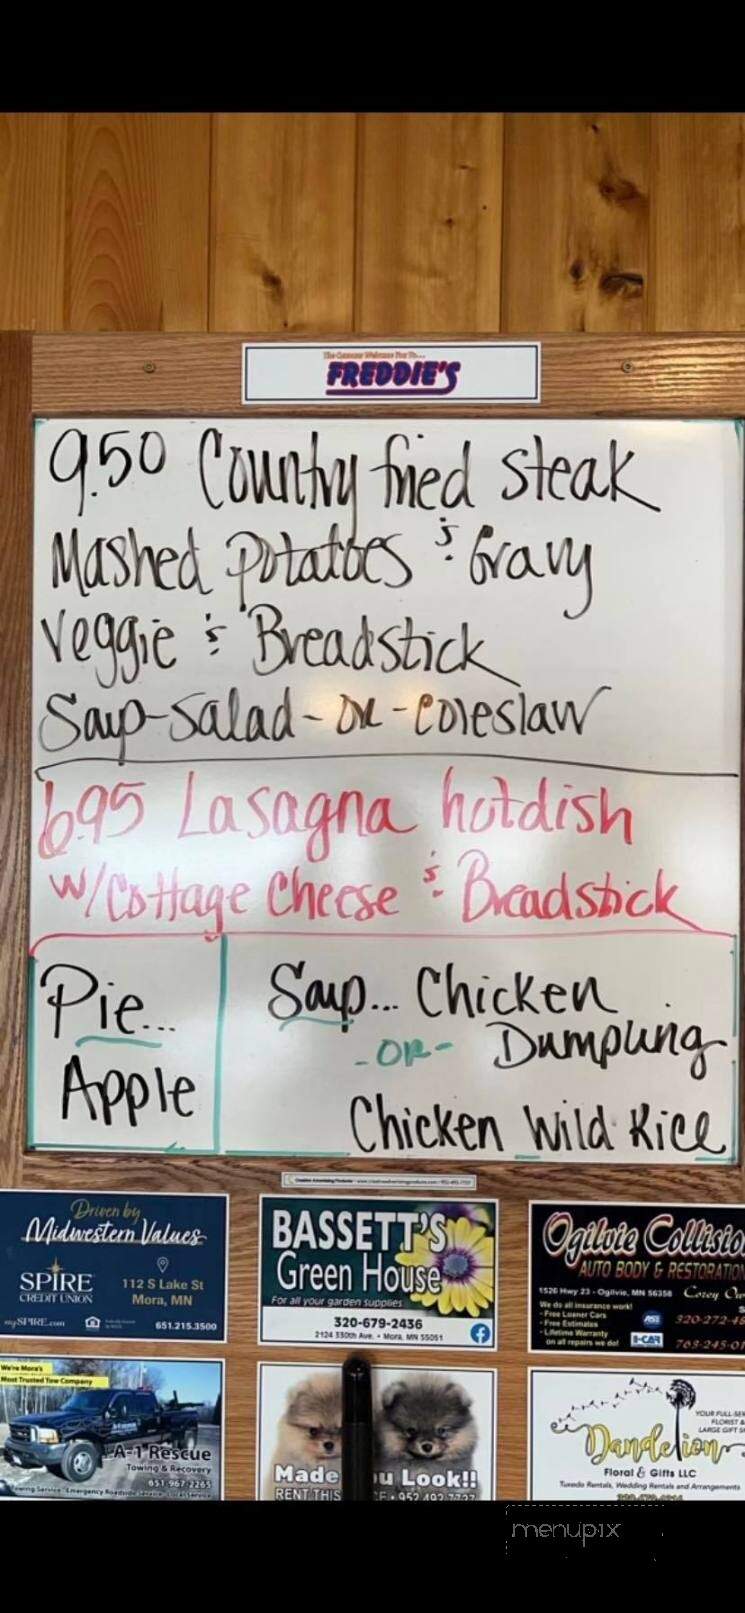 The Genuine Welcome For To...
FREDDIE'S
9.50 Country fried steak
Mashed Potatoes & Gravy
Veggie & Breadstick
Soup-Salad-or-coleslaw
6.95 Lasagna hotdish
w/Cottage Cheese & Breadstick
Pie...
Apple
Soup... Chicken
-OR- Dumpling
Chicken Wild Rice
Driven by
Midwestern Values
SPIRE
CREDIT UNION
112 S Lake St
Mora, MN
mySPIRE.com
651.215.3500
BASSETT'S
Green House
For all your garden supplies
320-679-2436
2124 330th Ave. • Mora, MN 55051
Ogilvie Collisio
AUTO BODY & RESTORATION
1526 Hwy 23 - Ogilvie, MN 56358
Corey Ow
We do all insurance work!
- Free Loaner Cars
- Free Estimates
- Lifetime Warranty
on all repairs we do!
ASE
I-CAR
320-272-4
763-245-01
We're Mora's
Most Trusted Tow Company
A-1 Rescue
Towing & Recovery
651-967-2265
Made u Look!!
RENT THIS
952-492-7727
YOUR FULL-SER
FLORIST &
LARGE GIFT S
Dandelion
Floral & Gifts LLC
Tuxedo Rentals, Wedding Rentals and Arrangements
menupix